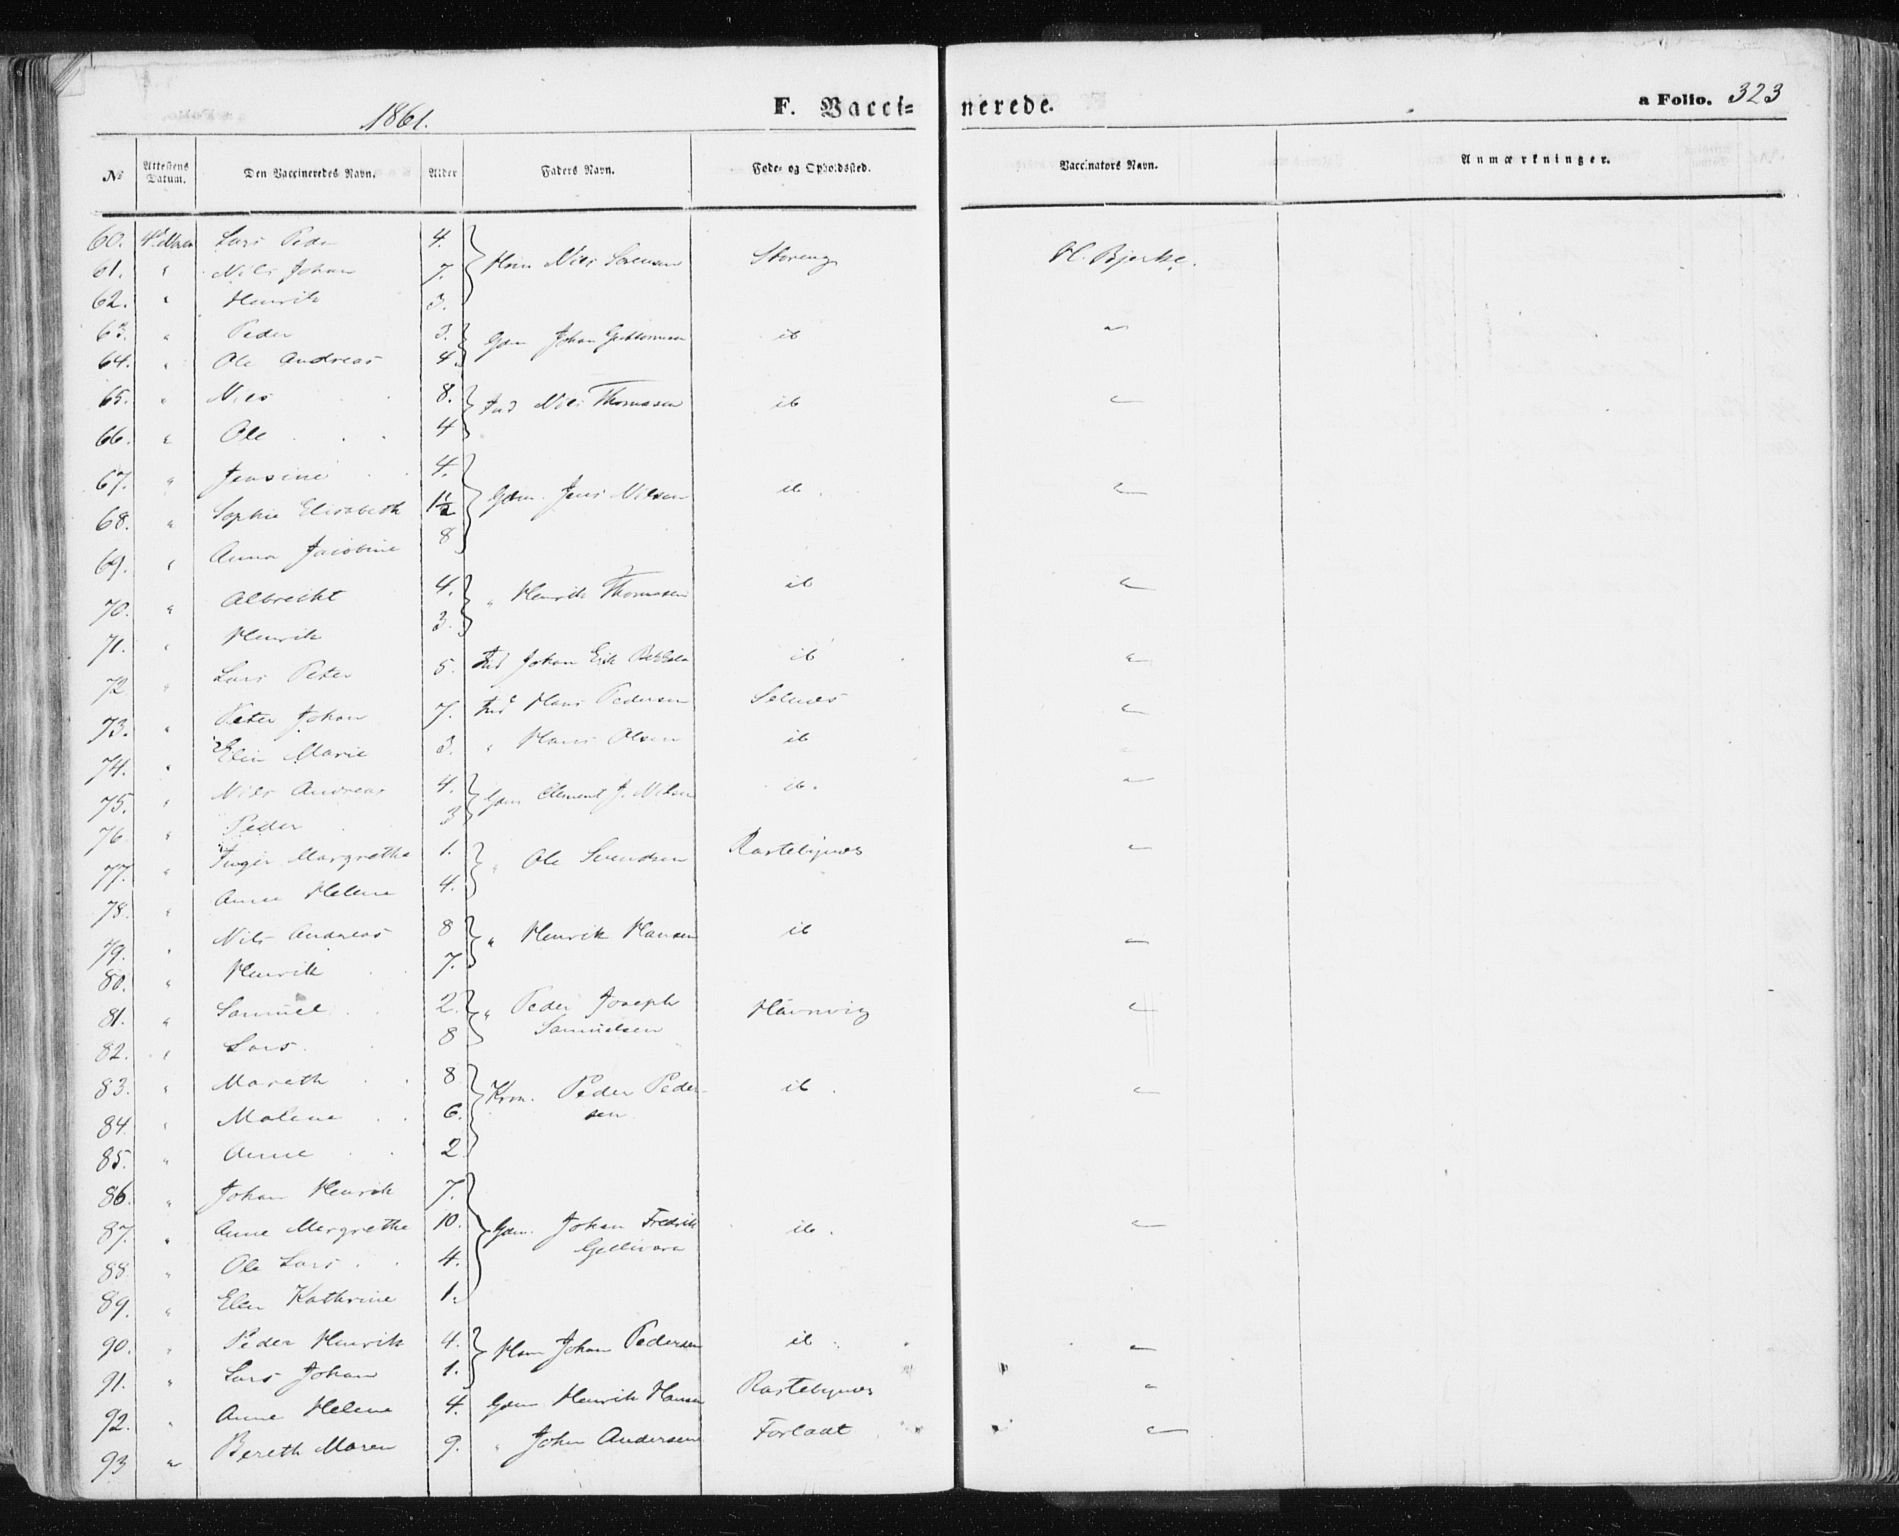 1861.
F. Vacci=
nerede.
a Folio. 323
№ Attestens Datum. Den Vaccineredes Navn. Alder Faders Navn. Føde- og Opholdssted. Vaccinators Navn. Anmærkninger.
60. Lars Peder 4.
61. " Nils Johan 7. Nils Sørensen Storeng H. Bjerke.
62. " Henrik 3.
63. " Peder 3. Gdm Johan Guttormsen ib "
64. " Ole Andreas 4.
65. " Nils 8. Ind Nils Thomasen ib "
66. " Ole 4
67. " Jensine 4.
68. " Sophie Elisabeth 1½ Gdm. Jens Nilsen ib. "
69. " Anna Jacobine 8
70. " Albrecht 4. " Henrik Thomasen ib "
71. " Henrik 3.
72 " Lars Peter 5. Ind Johan Erik ib "
73. " Peter Johan 7. Ind Hans Pedersen Selnæs "
74. " Elen Marie 3. " Hans Olsen ib "
75. " Nils Andreas 4. Gdm Clement J. Nilsen ib. "
76 " Peder 3
77. " Inger Margrethe 1. " Ole Svendsen Rastebynæs "
78. " Anne Helene 4.
79. " Nils Andreas 8 " Henrik Hansen ib "
80. " Henrik 7.
81. " Samuel 2. " Peder Joseph Havnvig "
82. " Lars 8 Samuelsen
83. " Mareth 8 Kom. Peder Peder- ib. "
84. " Malene 6. sen
85. " Anne 2
86. " Johan Henrik 7.
87. " Anne Margrethe 10. Gdm. Johan Fredrik ib. "
88. " Ole Lars 4. Gellivara
89. " Elen Kathrine 1.
90. " Peder Henrik 4. Johan Pedersen ib "
91. " Lars Johan 1.
92. " Anne Helene 4. Gdm Henrik Hansen Rastebynæs "
93 " Bereth Maren 9. " John Andersen Forladt "